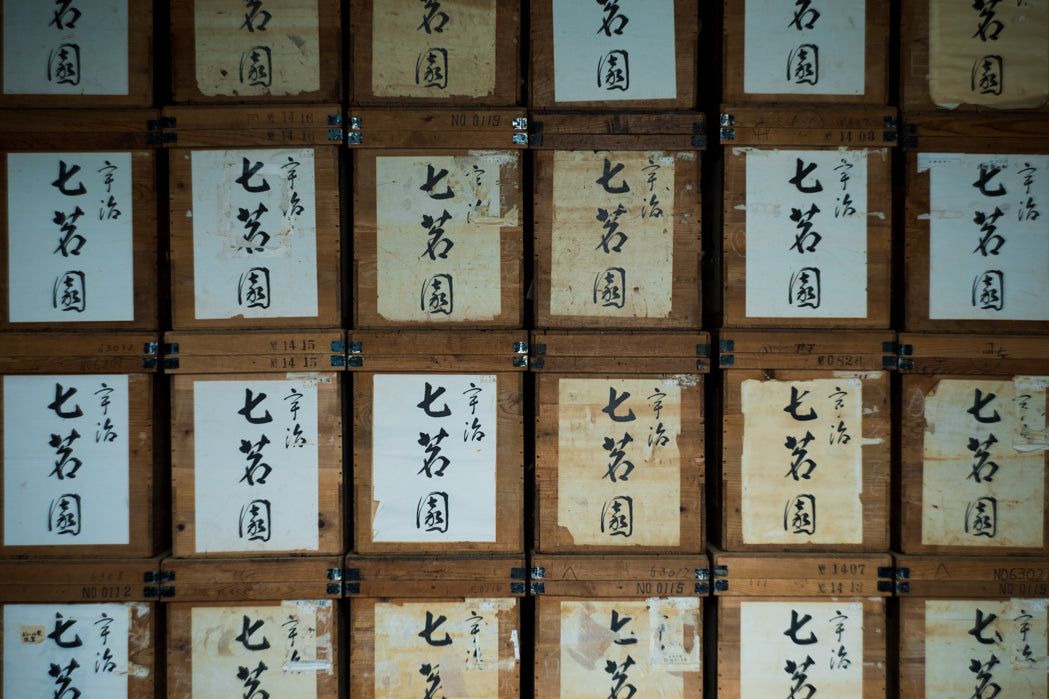 茗園
茗園
茗園
茗園
茗園
茗園
14 16
14 16
NO 0119
14 03
宇治
七茗園
宇治
七茗園
宇治
七茗園
宇治
七茗園
宇治
七茗園
宇治
七茗園
14 15
14 15
0828
宇治
七茗園
宇治
七茗園
宇治
七茗園
宇治
七茗園
宇治
七茗園
宇治
七茗園
NO 0112
6302
NO 0115
1407
14 13
NO6302
NO 0119
宇治
七茗
宇治
七茗
宇治
七茗
宇治
七茗
宇治
七茗
宇治
七茗